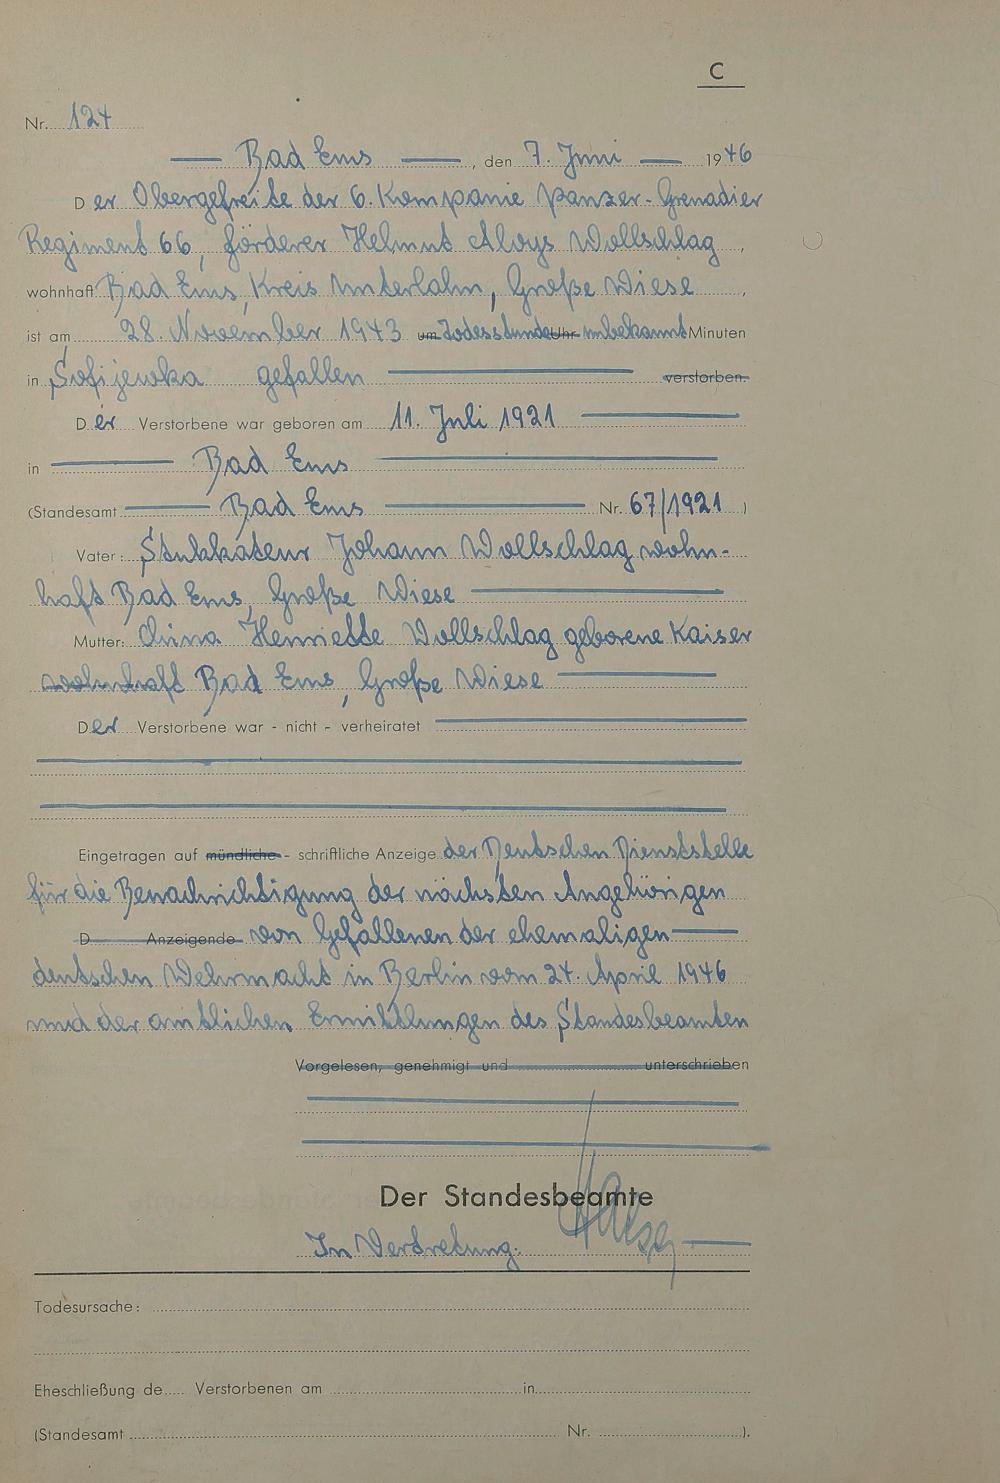 C
Nr. 124
Bad Ems, den 7. Juni 1946
Der Obergefreite der 6. Kompanie Panzer-Grenadier
Regiment 66, förderer Helmut Aloys Wollschlag,
wohnhaft Bad Ems, Kreis Unterlahn, Große Wiese,
ist am 28. November 1943 um Todesstunde Uhr unbekannt Minuten
in Sofijewka gefallen verstorben.
Der Verstorbene war geboren am 11. Juli 1921
in Bad Ems
(Standesamt Bad Ems Nr. 67/1921)
Vater: Stukkateur Johann Wollschlag wohn-
haft Bad Ems, Große Wiese
Mutter: Anna Henriette Wollschlag geborene Kaiser
wohnhaft Bad Ems, Große Wiese
Der Verstorbene war - nicht - verheiratet
Eingetragen auf mündliche - schriftliche Anzeige der Deutschen Dienststelle
für die Benachrichtigung der nächsten Angehörigen
D Anzeigende von Gefallenen der ehemaligen
deutschen Wehrmacht in Berlin vom 24. April 1946
und der amtlichen Ermittlungen des Standesbeamten
Vorgelesen, genehmigt und unterschrieben
Der Standesbeamte
In Vertretung:
Todesursache:
Eheschließung de Verstorbenen am in
(Standesamt Nr. ).